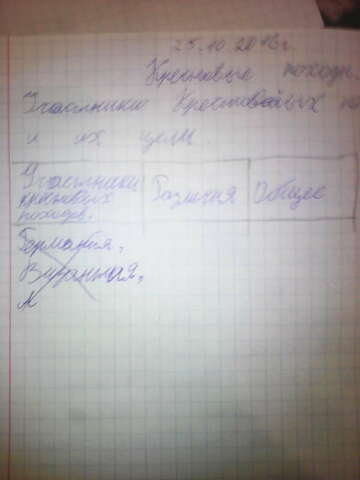 25.10.2016г.
Крестовые походы
Участники Крестовых по
и их цели.
Участники крестовых походов.
Различия
Общее
Германия,
Византия,